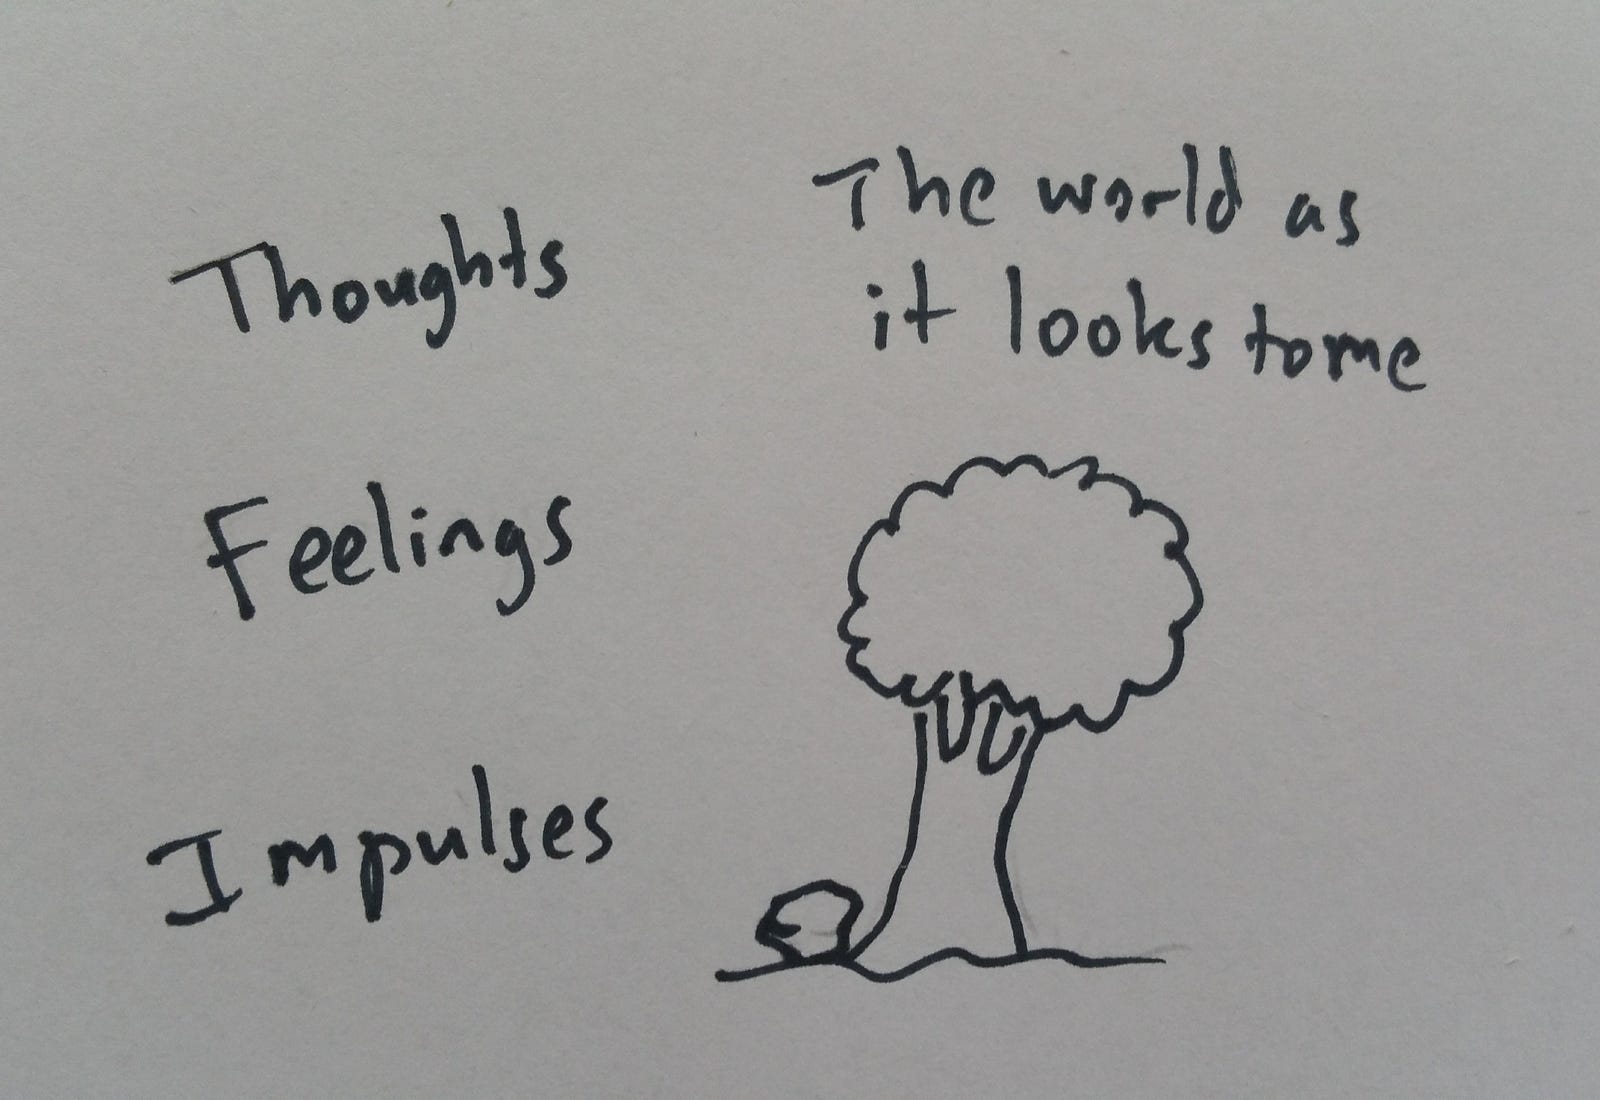 Thoughts
Feelings
Impulses
The world as
it looks to me